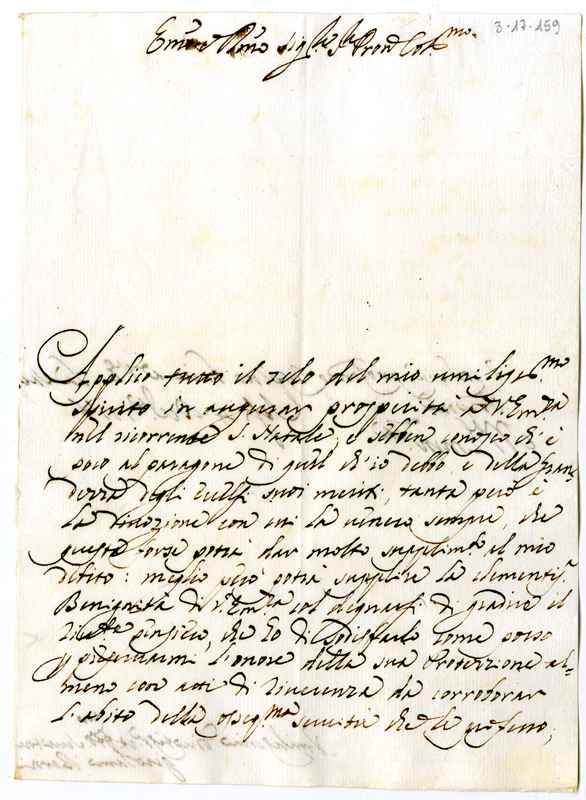 3-17-159
Em̃o e Rm̃o Sig.re Sig.re Pron Col.mo
Applico tutto il zelo del mio umilissmo
spirito in augurar prosperità a V. Emza
nel ricorrente S. Natale, e sebben conosco ch'è
poco al paragone di quel ch'io debbo, e della gran,,
dezza degli eccelsi suoi meriti, tanta però è
la divozione con cui la venero sempre, che
questa forse potrà dar molto supplimto al mio
debito: meglio però potrà supplire la clementis.
Benignità di V. Emza col degnarsi di gradire il
che Io di sodisfarlo come posso
p preservarmi l'onore della sua Protezzione al=
meno con atti di riverenza da corroborar
l'abito della osseqma servitù che le professo,